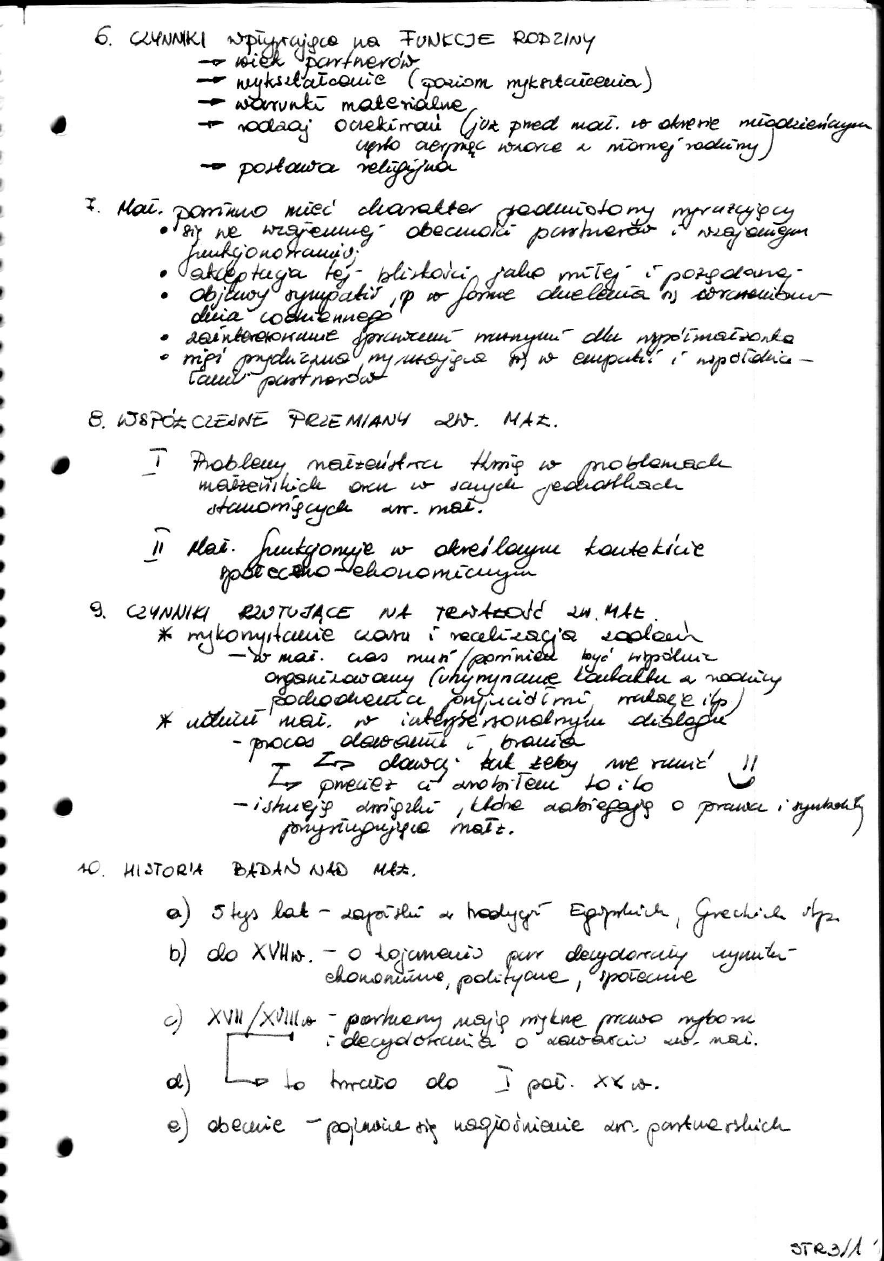 6. CZYNNIKI wpływające na FUNKCJE RODZINY
→ wiek partnerów
→ wykształcenie (poziom wykształcenia)
→ warunki materialne
→ rodzaj oczekiwań (już przed mał. w okresie młodzieńczym
często czerpiąc wzorce z własnej rodziny)
→ postawa religijna
7. Mał. powinno mieć charakter podmiotowy wyrażający
• się we wzajemnej obecności partnerów i wzajemnym
funkcjonowaniu;
• akceptacja tej bliskości jako miłej i pożądanej
• objawy sympatii, w formie dzielenia się
dnia codziennego
• zainteresowanie sprawami ważnymi dla współmałżonka
• więź psychiczna wyrażająca się w empatii i współdzia-
łaniu partnerów
8. WSPÓŁCZESNE PRZEMIANY ZW. MAŁ.
I Problemy małżeństwa tkwią w problemach
małżeńskich oraz w samych jednostkach
stanowiących zw. mał.
II Mał. funkcjonuje w określonym kontekście
społeczno-ekonomicznym
9. CZYNNIKI RZUTUJĄCE NA TRWAŁOŚĆ ZW. MAŁ.
* wykorzystanie czasu i realizacja zadań
- w mał. czas musi/powinien być wspólnie
organizowany (utrzymywanie kontaktu z rodziną
pochodzenia, przyjaciółmi, wakacje itp)
* udział mał. w interpersonalnym dialogu
- proces dawania i brania
↳ dawaj tak żeby nie ranić !!
↳ przecież ci zrobiłem to i to
- istnieją związki, które zabiegają o prawa i symbole
przysługujące małż.
10. HISTORIA BADAŃ NAD MAŁ.
a) 5 tys lat - zapiski z tradycji Egipskich, Greckich itp.
b) do XVII w. - o kojarzeniu par decydowały czynniki
ekonomiczne, polityczne, społeczne
c) XVII/XVIII w - partnerzy mają prawo wyboru
i decydowania o zawarciu zw. mał.
d) → to trwało do I poł. XX w.
e) obecnie - pojawia się nagłośnienie zw. partnerskich
STR 3/1